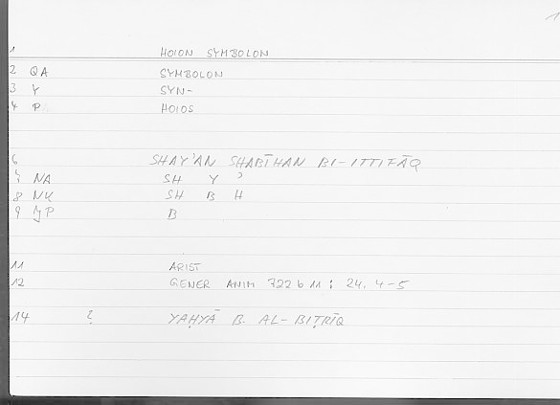 1
1 HOION SYMBOLON
2 QA SYMBOLON
3 Y SYN-
4 P HOIOS
6 SHAY'AN SHABĪHAN BI-ITTIFĀQ
7 NA SH Y ʾ
8 NK SH B H
9 JP B
11 ARIST
12 GENER ANIM 722 b 11 : 24. 4-5
14 ? YAḤYĀ B. AL-BIṬRĪQ